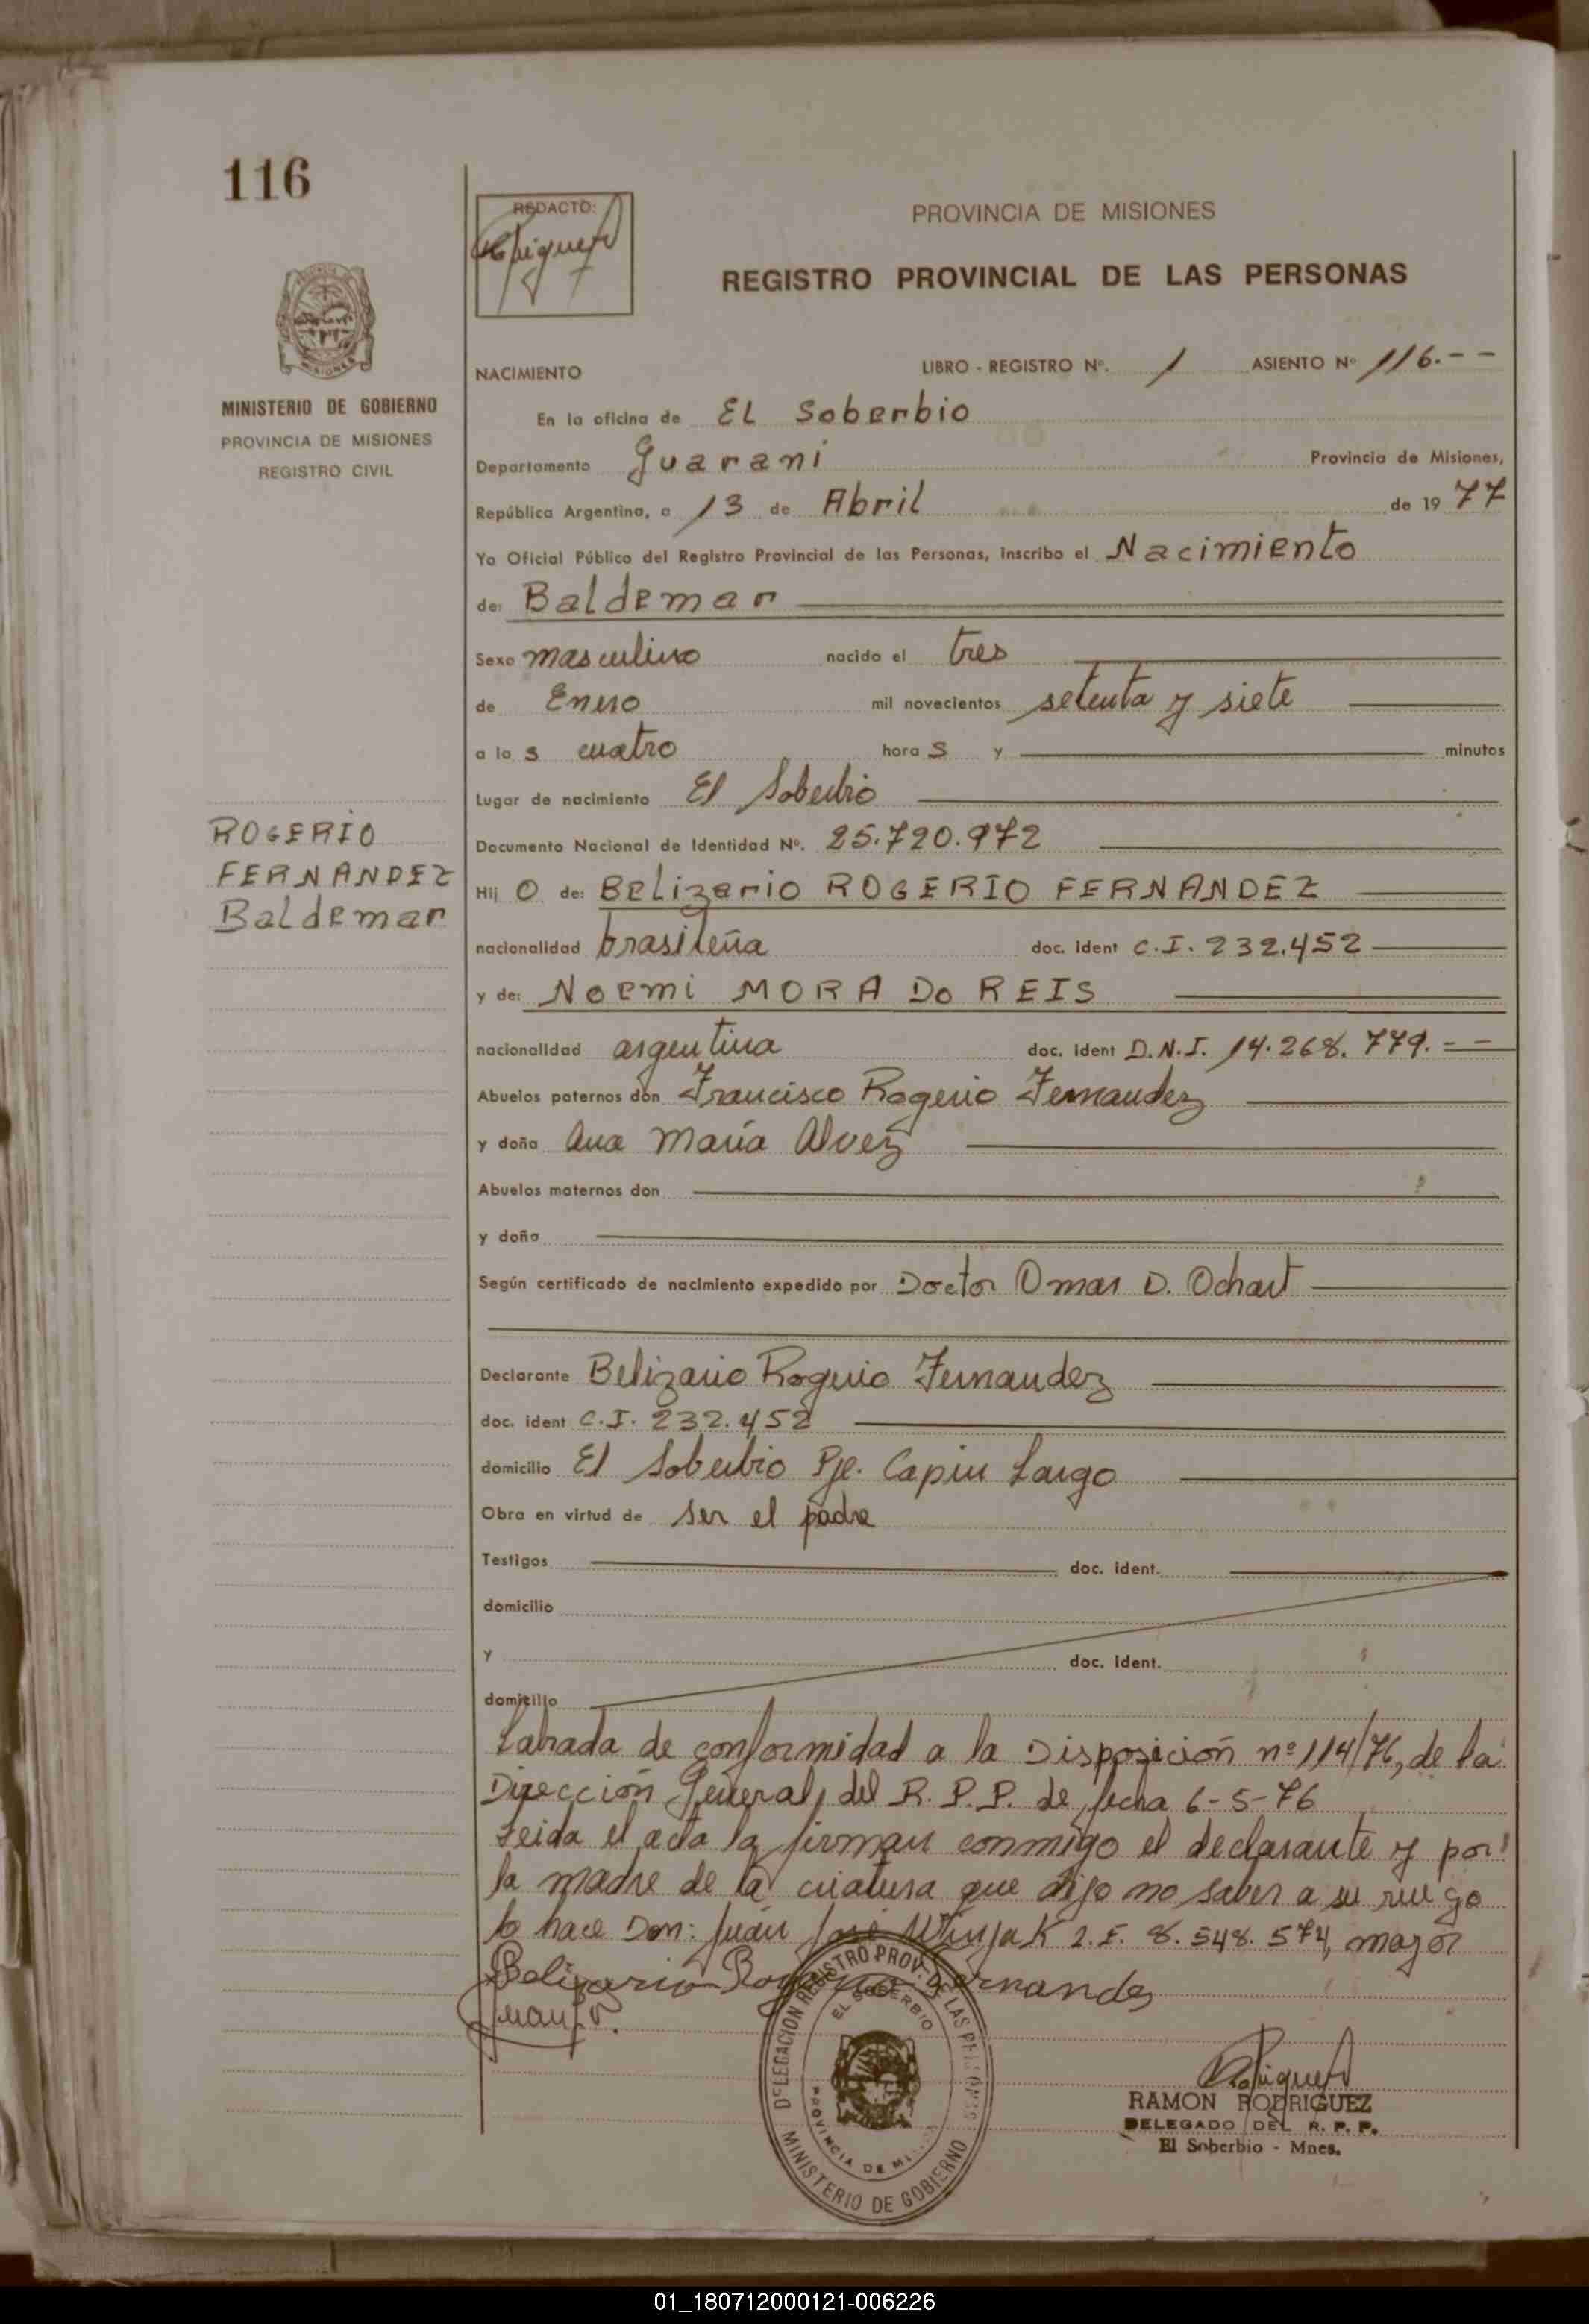 116
REDACTO:
PROVINCIA DE MISIONES
REGISTRO PROVINCIAL DE LAS PERSONAS
MINISTERIO DE GOBIERNO
PROVINCIA DE MISIONES
REGISTRO CIVIL
NACIMIENTO LIBRO - REGISTRO Nº. 1 ASIENTO Nº 116.--
En la oficina de EL Soberbio
Departamento Guarani Provincia de Misiones,
República Argentina, a 13 de Abril de 19 77
Yo Oficial Público del Registro Provincial de las Personas, inscribo el Nacimiento
de: Baldemar
Sexo masculino nacido el tres
de Enero mil novecientos setenta y siete
a la s cuatro hora s y minutos
Lugar de nacimiento El Soberbio
Documento Nacional de Identidad Nº. 25.720.972
ROGERIO
FERNANDEZ
Baldemar
Hij o de: Belizario ROGERIO FERNANDEZ
nacionalidad brasileña doc. ident C.I. 232.452
y de: Noemi MORA Do REIS
nacionalidad argentina doc. ident D.N.I. 14.268.779.--
Abuelos paternos don Francisco Rogerio Fernandez
y doña Ana María Alvez
Abuelos maternos don
y doña
Según certificado de nacimiento expedido por Doctor Omar D. Ochart
Declarante Belizario Rogerio Fernandez
doc. ident C.I. 232.452
domicilio El Soberbio Pje. Capin Largo
Obra en virtud de ser el padre
Testigos doc. ident.
domicilio
y doc. ident.
domicilio
Labrada de conformidad a la Disposición nº 114/76, de la
Dirección General, del R.P.P. de fecha 6-5-76
Leida el acta la firman conmigo el declarante y por
la madre de la criatura que dijo no saber a su ruego
lo hace Don: Juan José 8.548.574, mayor
Belizario Rogerio Fernandes
DELEGACION REGISTRO PROV. DE LAS PERSONAS
EL SOBERBIO
PROVINCIA DE MISIONES
MINISTERIO DE GOBIERNO
RAMON RODRIGUEZ
DELEGADO DEL R. P. P.
El Soberbio - Mnes.
01_180712000121-006226